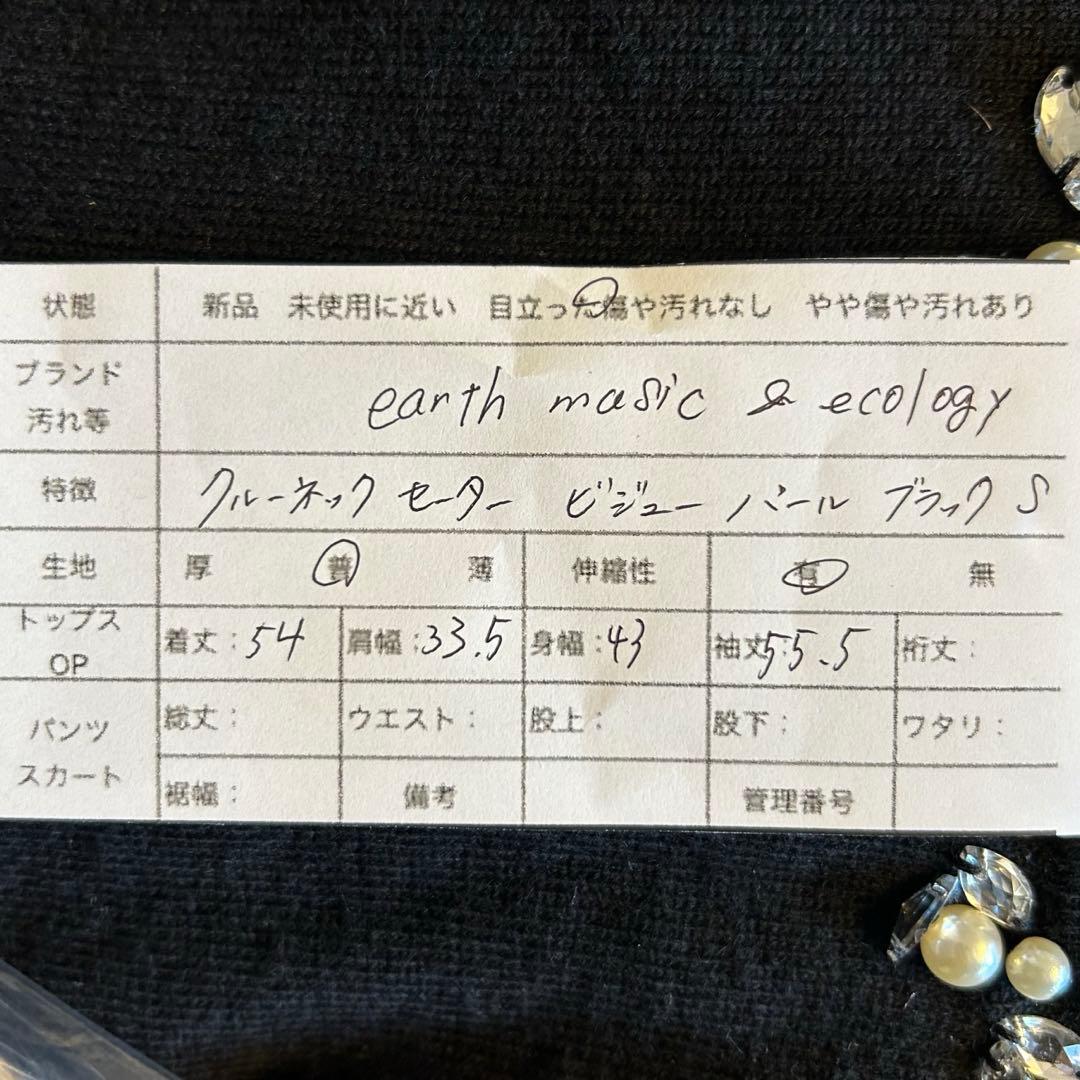 状態 新品 未使用に近い 目立った傷や汚れなし やや傷や汚れあり
ブランド
汚れ等 earth music & ecology
特徴 クルーネック セーター ビジュー パール ブラック S
生地 厚 普 薄 伸縮性 有 無
トップス
OP 着丈:54 肩幅:33.5 身幅:43 袖丈:55.5 裄丈:
パンツ
スカート
総丈: ウエスト: 股上: 股下: ワタリ:
裾幅: 備考 管理番号